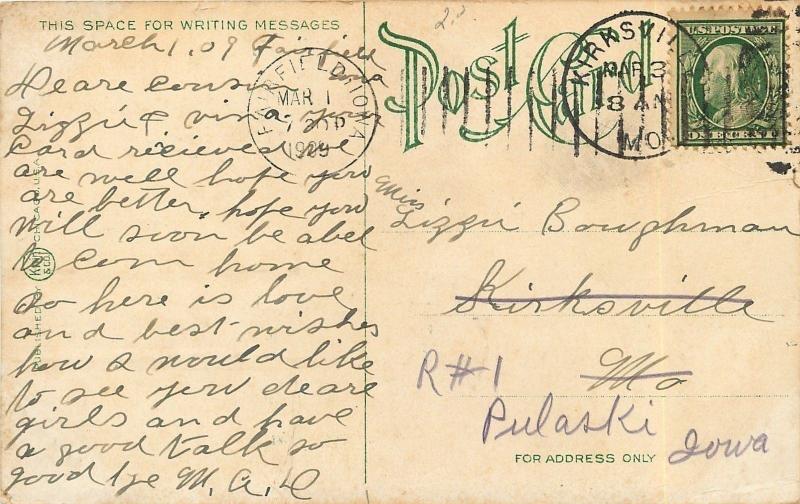 THIS SPACE FOR WRITING MESSAGES
March 1, 09 Fairfield
Deare cousin
Lizzie & vina your
card recieved we
are well hope you
are better, hope you
will soon be abel
to com home
so here is love
and best wishes
how I would like
to see you deare
girls and have
a good talk so
good bye M. A. D
PUBLISHED BY
CHICAGO, U.S.A.
FAIRFIELD, IOWA
MAR 1
1909
Post Card
KIRKSVILLE
MAR 3
8 AM
MO.
U.S. POSTAGE
ONE CENT
Miss
Lizzie Boughman
Kirksville
Mo
R#1
Pulaski
Iowa
FOR ADDRESS ONLY